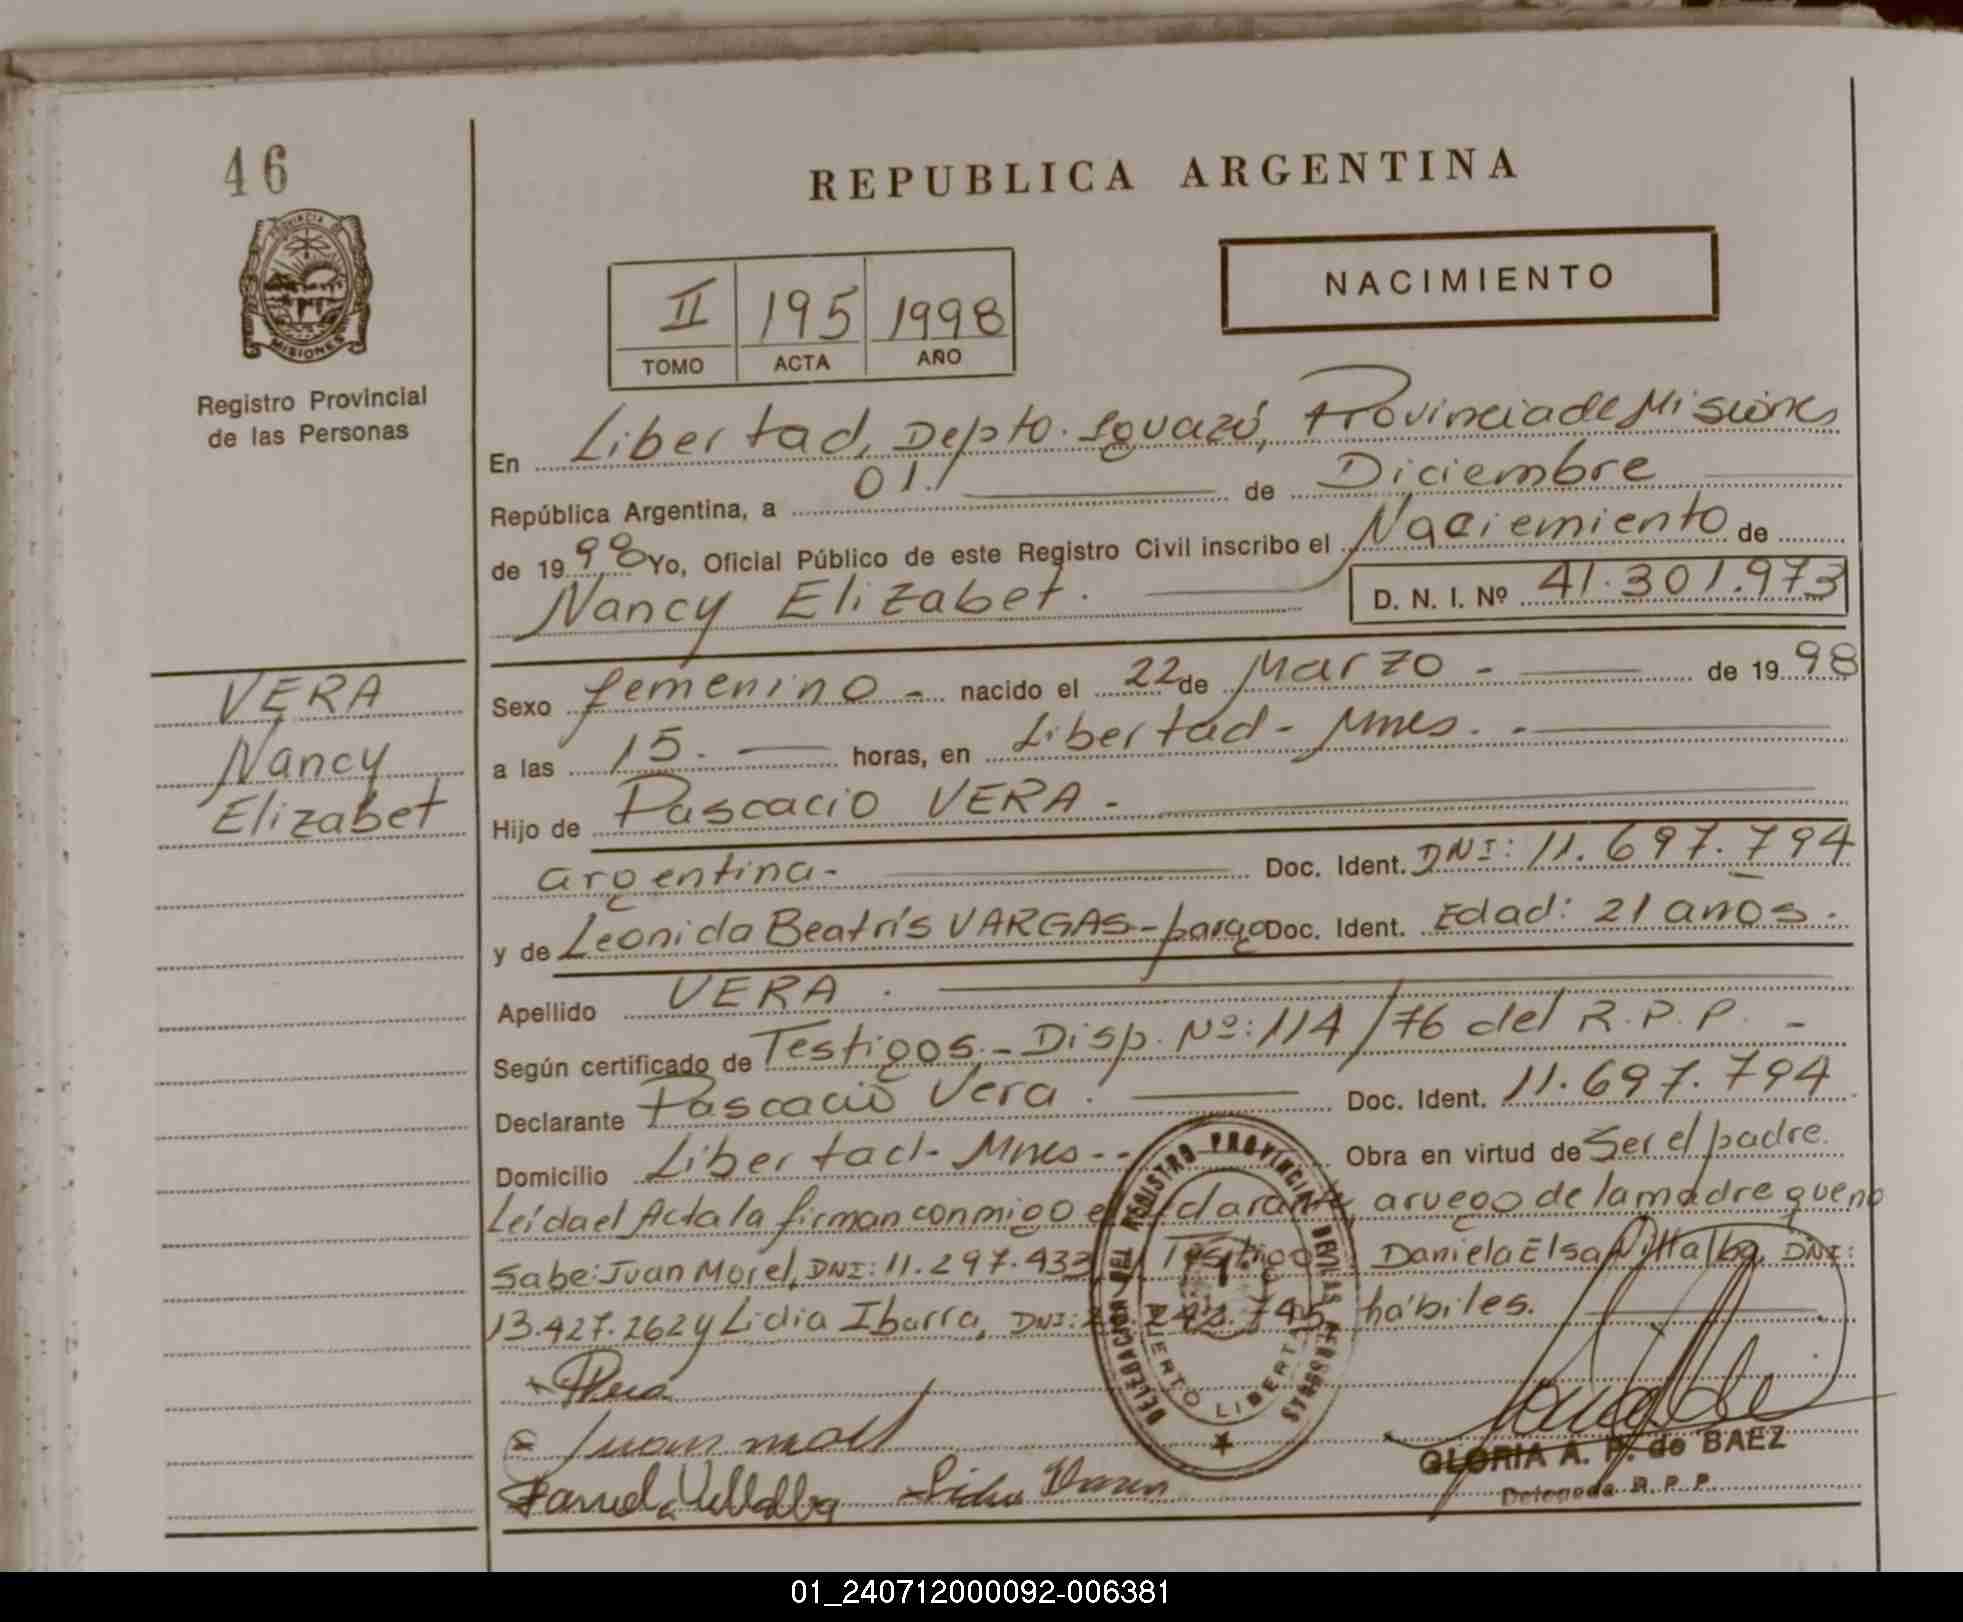 46
REPUBLICA ARGENTINA
PROVINCIA
MISIONES
Registro Provincial
de las Personas
II 195 1998
TOMO ACTA AÑO
NACIMIENTO
En Libertad, Depto. Iguazú, Provincia de Misiones
República Argentina, a 01. de Diciembre
de 19 98 Yo, Oficial Público de este Registro Civil inscribo el Naciemiento de
Nancy Elizabet. D. N. I. Nº 41.301.973
VERA
Nancy
Elizabet
Sexo femenino - nacido el 22 de Marzo - de 19 98
a las 15. horas, en Libertad - Mnes. -
Hijo de Pascacio VERA -
argentina - Doc. Ident. DNI: 11.697.794
y de Leonida Beatrís VARGAS - Doc. Ident. Edad: 21 años.
Apellido VERA .
Según certificado de Testigos. - Disp. Nº: 114/76 del R.P.P. -
Declarante Pascacio Vera . Doc. Ident. 11.697.794
Domicilio Libertad - Mnes - - Obra en virtud de Ser el padre.
Leída el Acta la firman conmigo el aruego de la madre que no
sabe: Juan Morel, DNI: 11.297.433 Testigo Daniela Elsa Villalba, DNI:
13.427.262 y Lidia Ibarra, DNI: 745 hábiles.
DELEGACION DEL REGISTRO PROVINCIAL DE LAS PERSONAS
PUERTO LIBERTAD
PVera
Juan morel
Daniela Villalba
GLORIA A. P. de BAEZ
Delegada R.P.P.
01_240712000092-006381